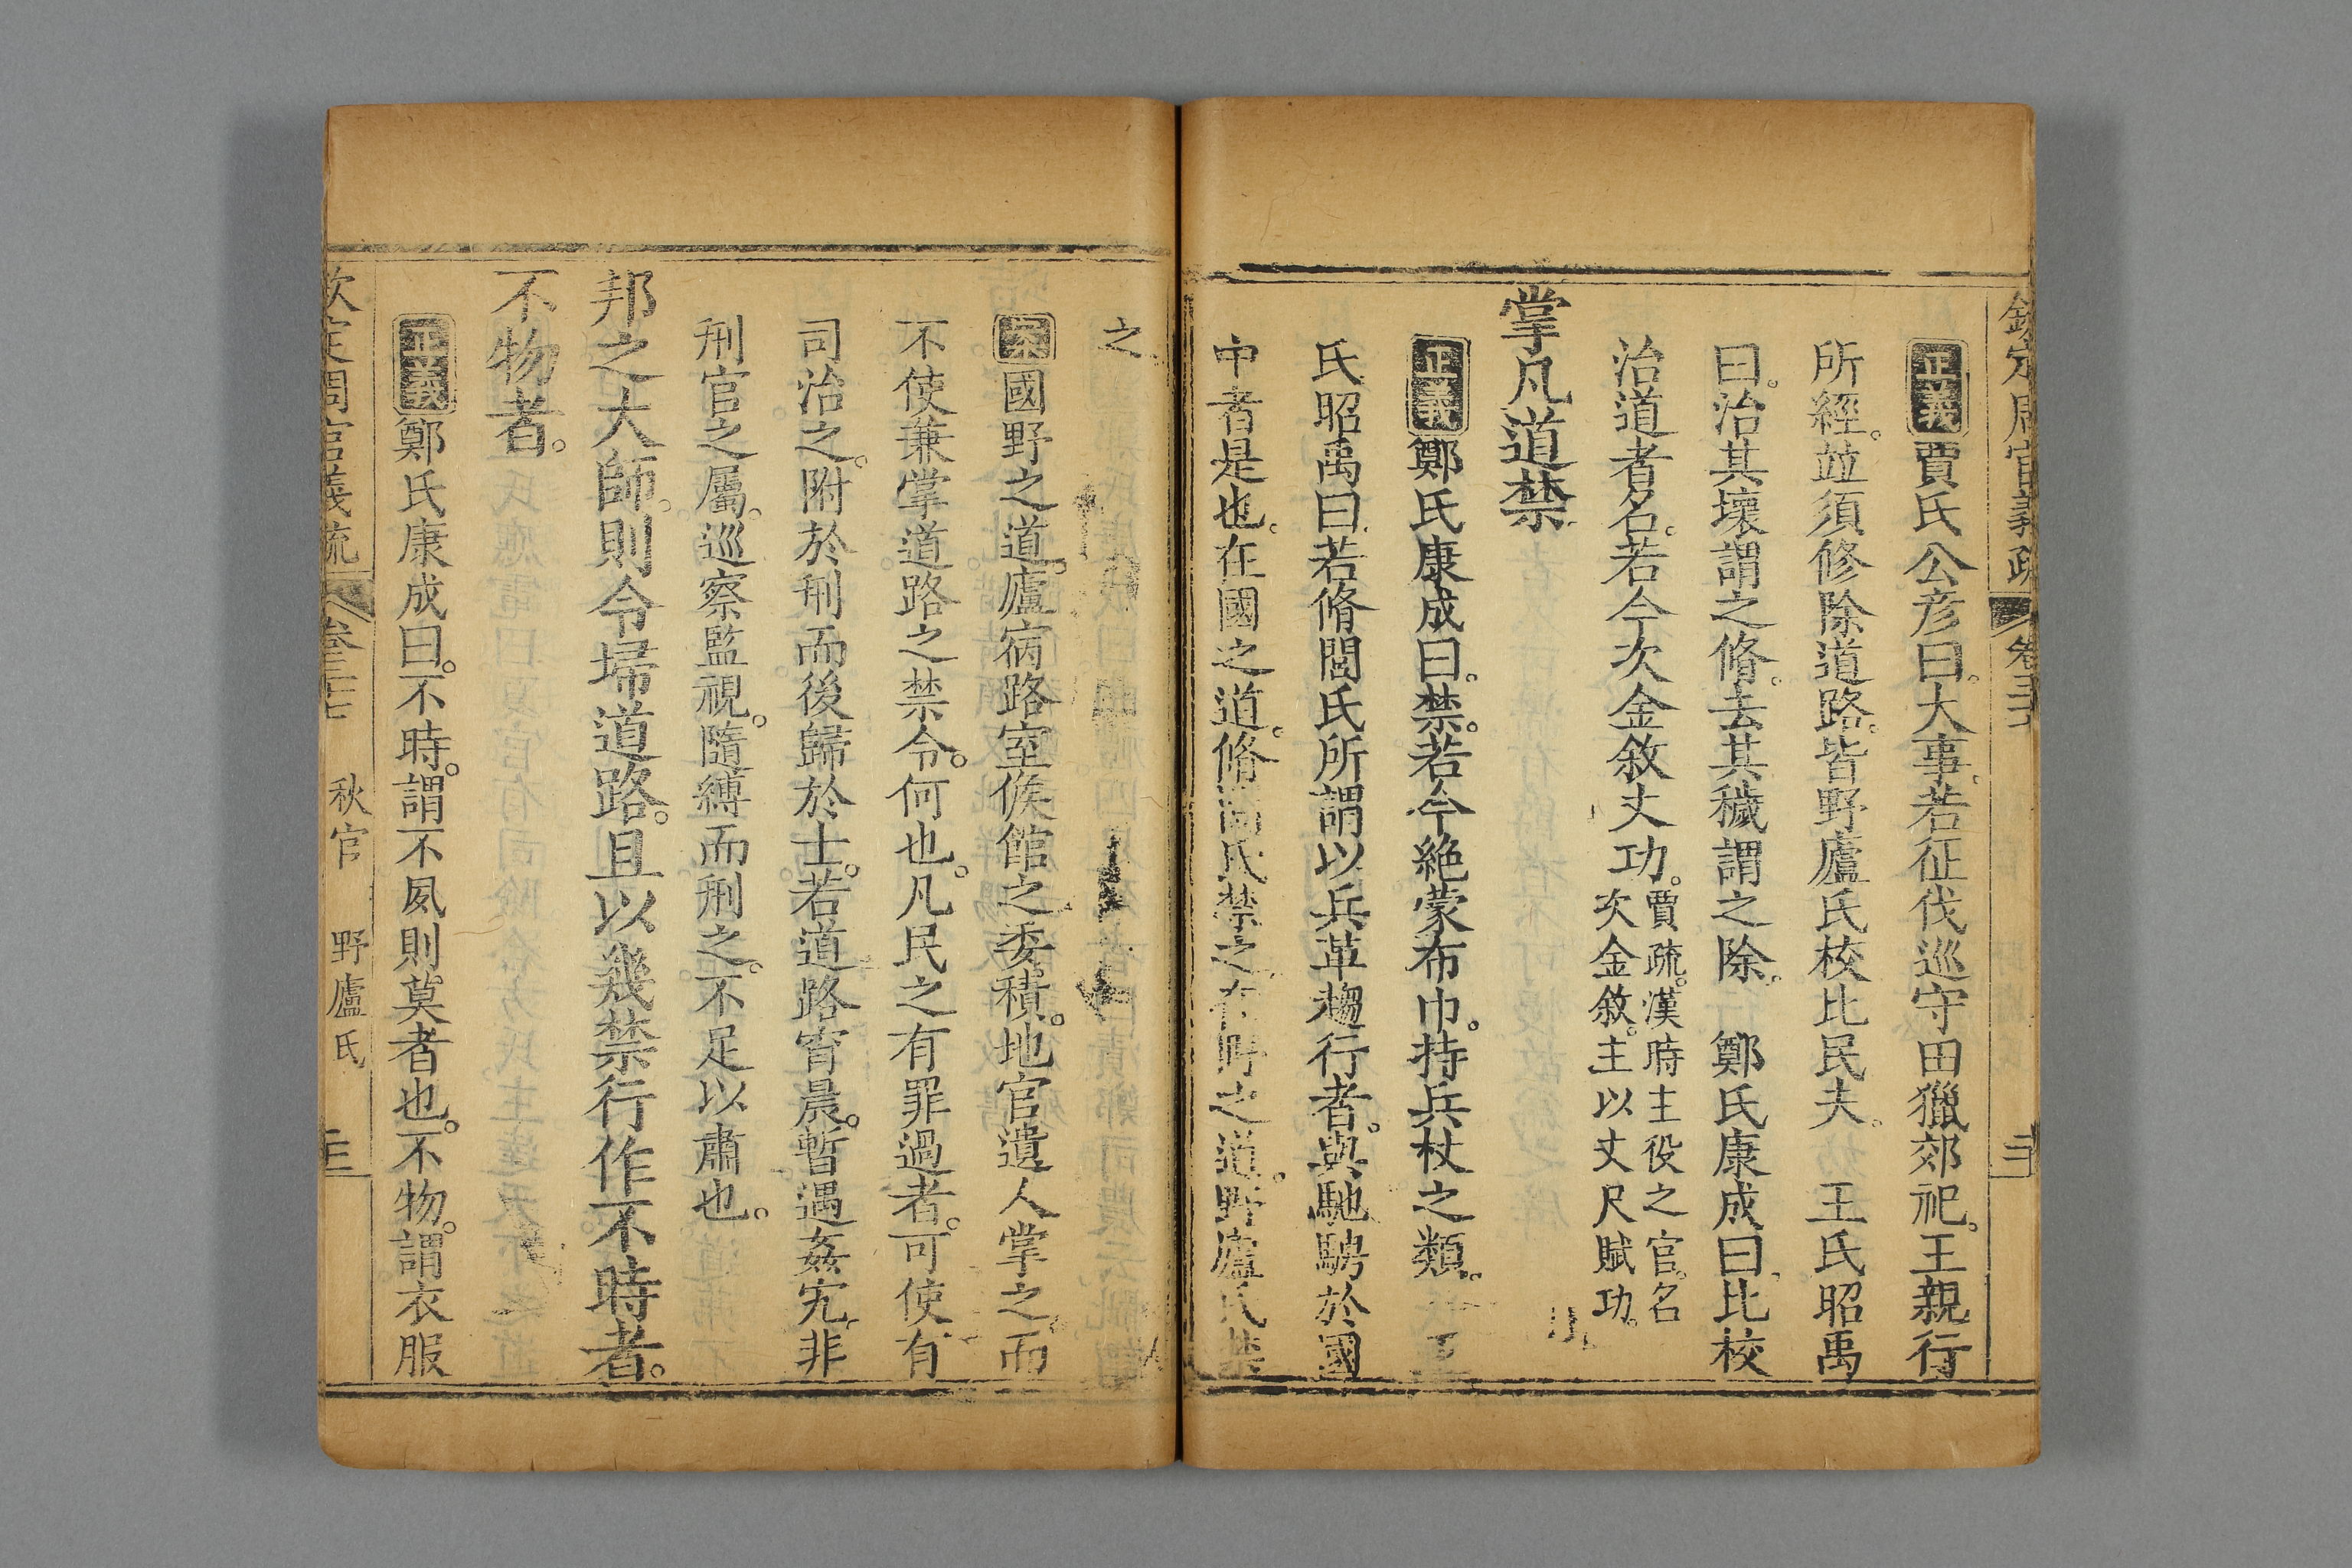 欽定周官義疏 卷三十七
正義賈氏公彦曰。大事。若征伐巡守田獵郊祀。王親行
所經。竝須修除道路。皆野廬氏校比民夫。 王氏昭禹
曰。治其壞謂之脩。去其穢謂之除。 鄭氏康成曰。比校
治道者名。若今次金敘丈功。賈疏。漢時主役之官。名
次金敘。主以丈尺賦功。
掌凡道禁
正義鄭氏康成曰。禁。若今絶蒙布巾。持兵杖之類。 王
氏昭禹曰。若脩閭氏所謂以兵革趨行者。與馳騁於國
中者是也。在國之道。脩閭氏禁之。在野之道。野廬氏禁
之。
案國野之道。廬宿路室候館之委積。地官遺人掌之。而
不使兼掌道路之禁令。何也。凡民之有罪過者。可使有
司治之。附於刑而後歸於士。若道路宵晨。暫遇姦宄。非
刑官之屬。巡察監視。隨縛而刑之。不足以肅也。
邦之大師。則令埽道路。且以幾禁行作不時者。
不物者。
正義鄭氏康成曰。不時。謂不夙則莫者也。不物。謂衣服
欽定周官義疏 卷三十七 秋官 野廬氏